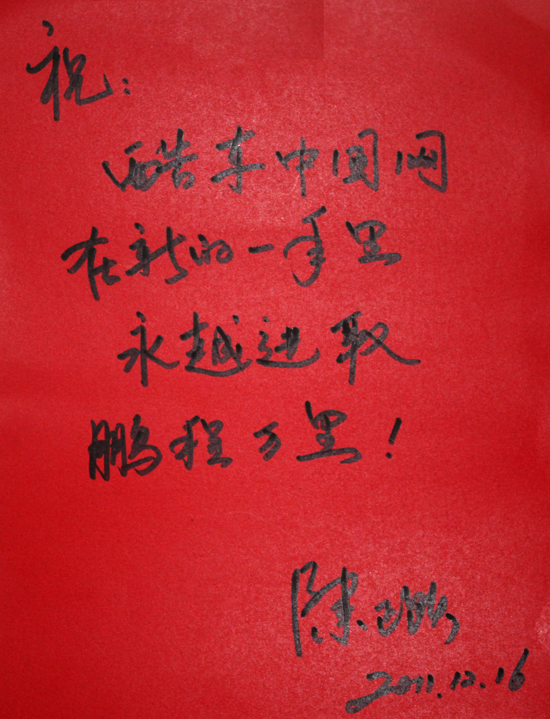 祝:
酷车中国网
在新的一年里
永越进取
鹏程万里!
陈
2011.12.16